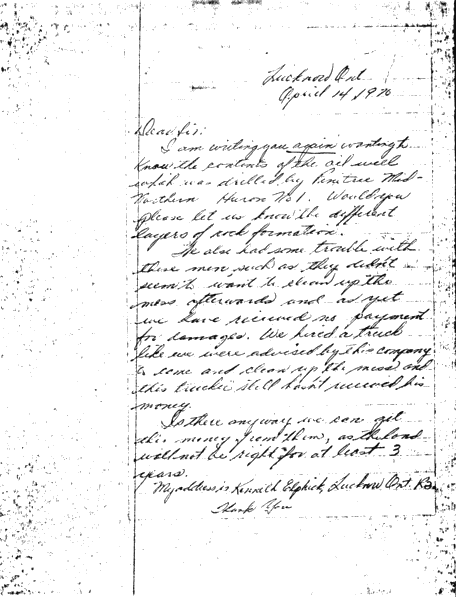 Lucknow Ont
April 14, 1970
Dear Sir:
I am writing you again wanting to
know the contents of the oil well
which was drilled by Mid-
Northern Huron No 1. Would you
please let us know the different
layers of rock formation.
We also had some trouble with
these men such as they didn't
seem to want to clean up the
mess afterwards and as yet
we have received no payment
for damages. We hired a truck
like we were advised by this company
to come and clean up the mess and
this trucker still hasn't received his
money.
Is there anyway we can get
this money from them, as the land
will not be right for at least 3
years.
My address is Kenneth Elphick, Lucknow Ont. R3.
Thank You